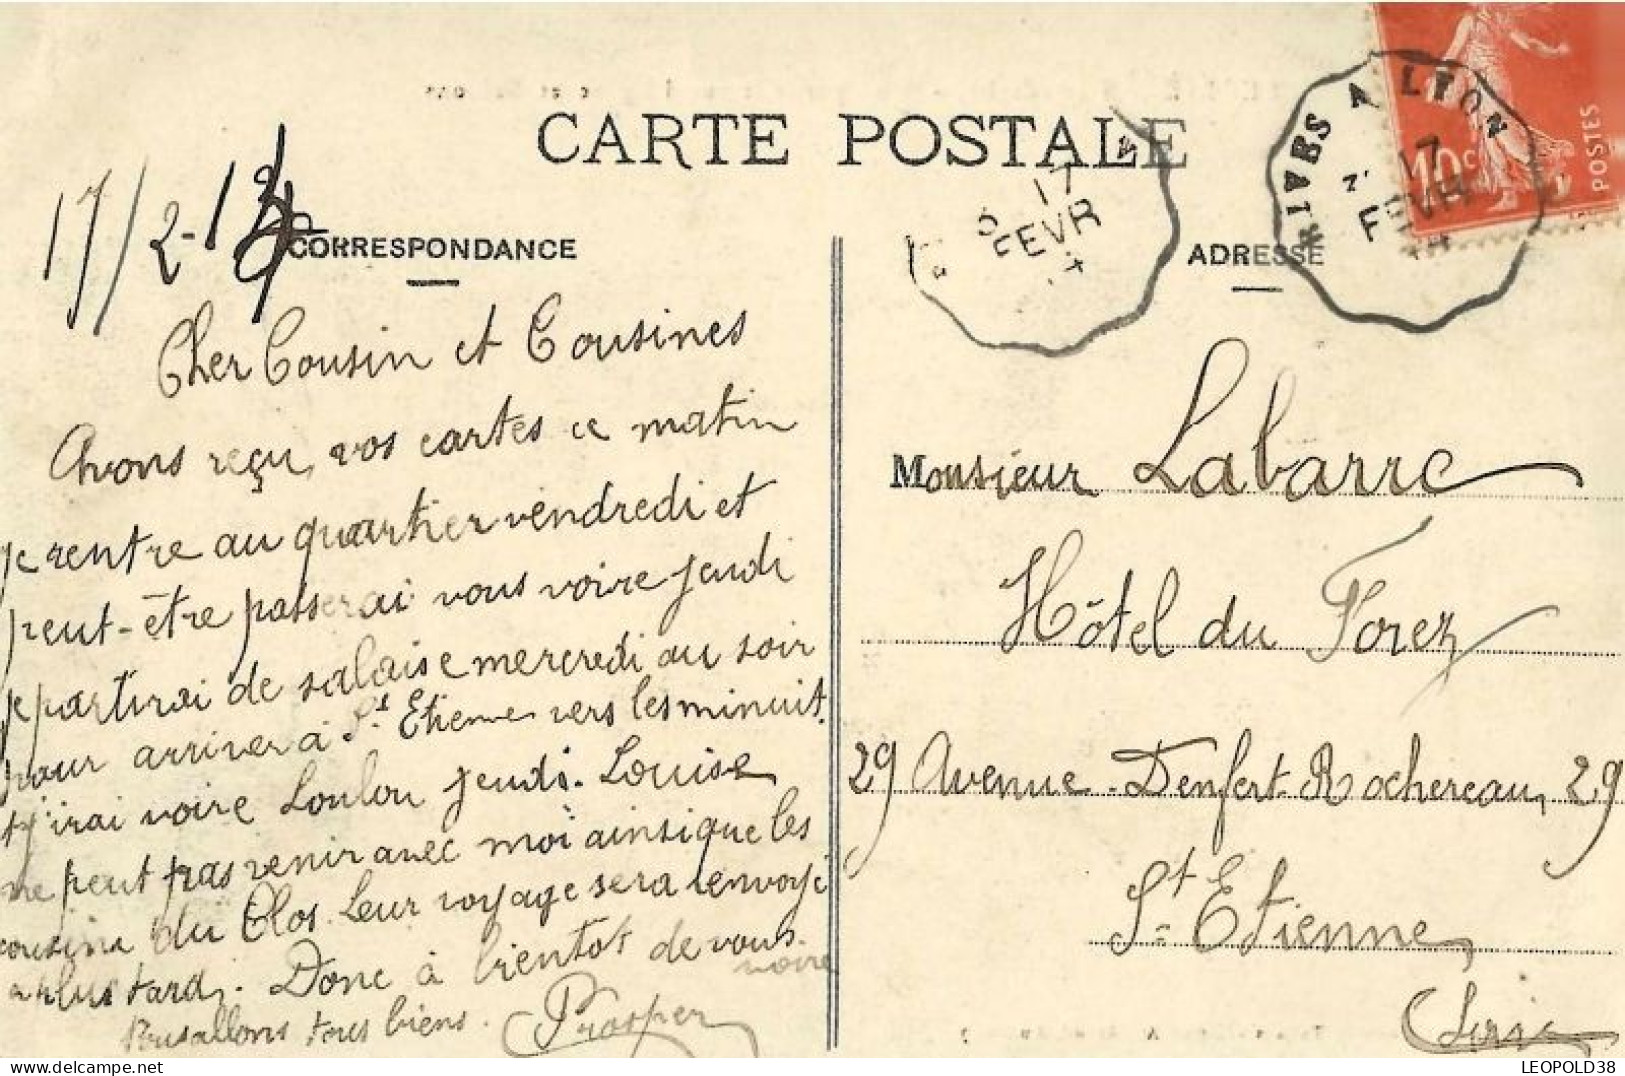 CARTE POSTALE
RIVES A LYON
17
FEVR
17
FEVR
10c
POSTES
17/2-14
CORRESPONDANCE
Cher Cousin et Cousines
Avons reçu vos cartes ce matin
je rentre au quartier vendredi et
peut-être passerai vous voire jeudi
je partirai de salaise mercredi au soir
pour arriver à St Etienne vers les minuit.
et j'irai voire Loulou jeudi. Louise
ne peut pas venir avec moi ainsi que les
cousins du Clos. Leur voyage sera renvoyé
a plus tard. Donc à bientot de vous
voire
Nous allons tous biens. Prosper
ADRESSE
Monsieur Labarre
Hôtel du Forez
29 Avenue Denfert-Rochereau, 29
St Etienne
Loire
delcampe.net
LEOPOLD38